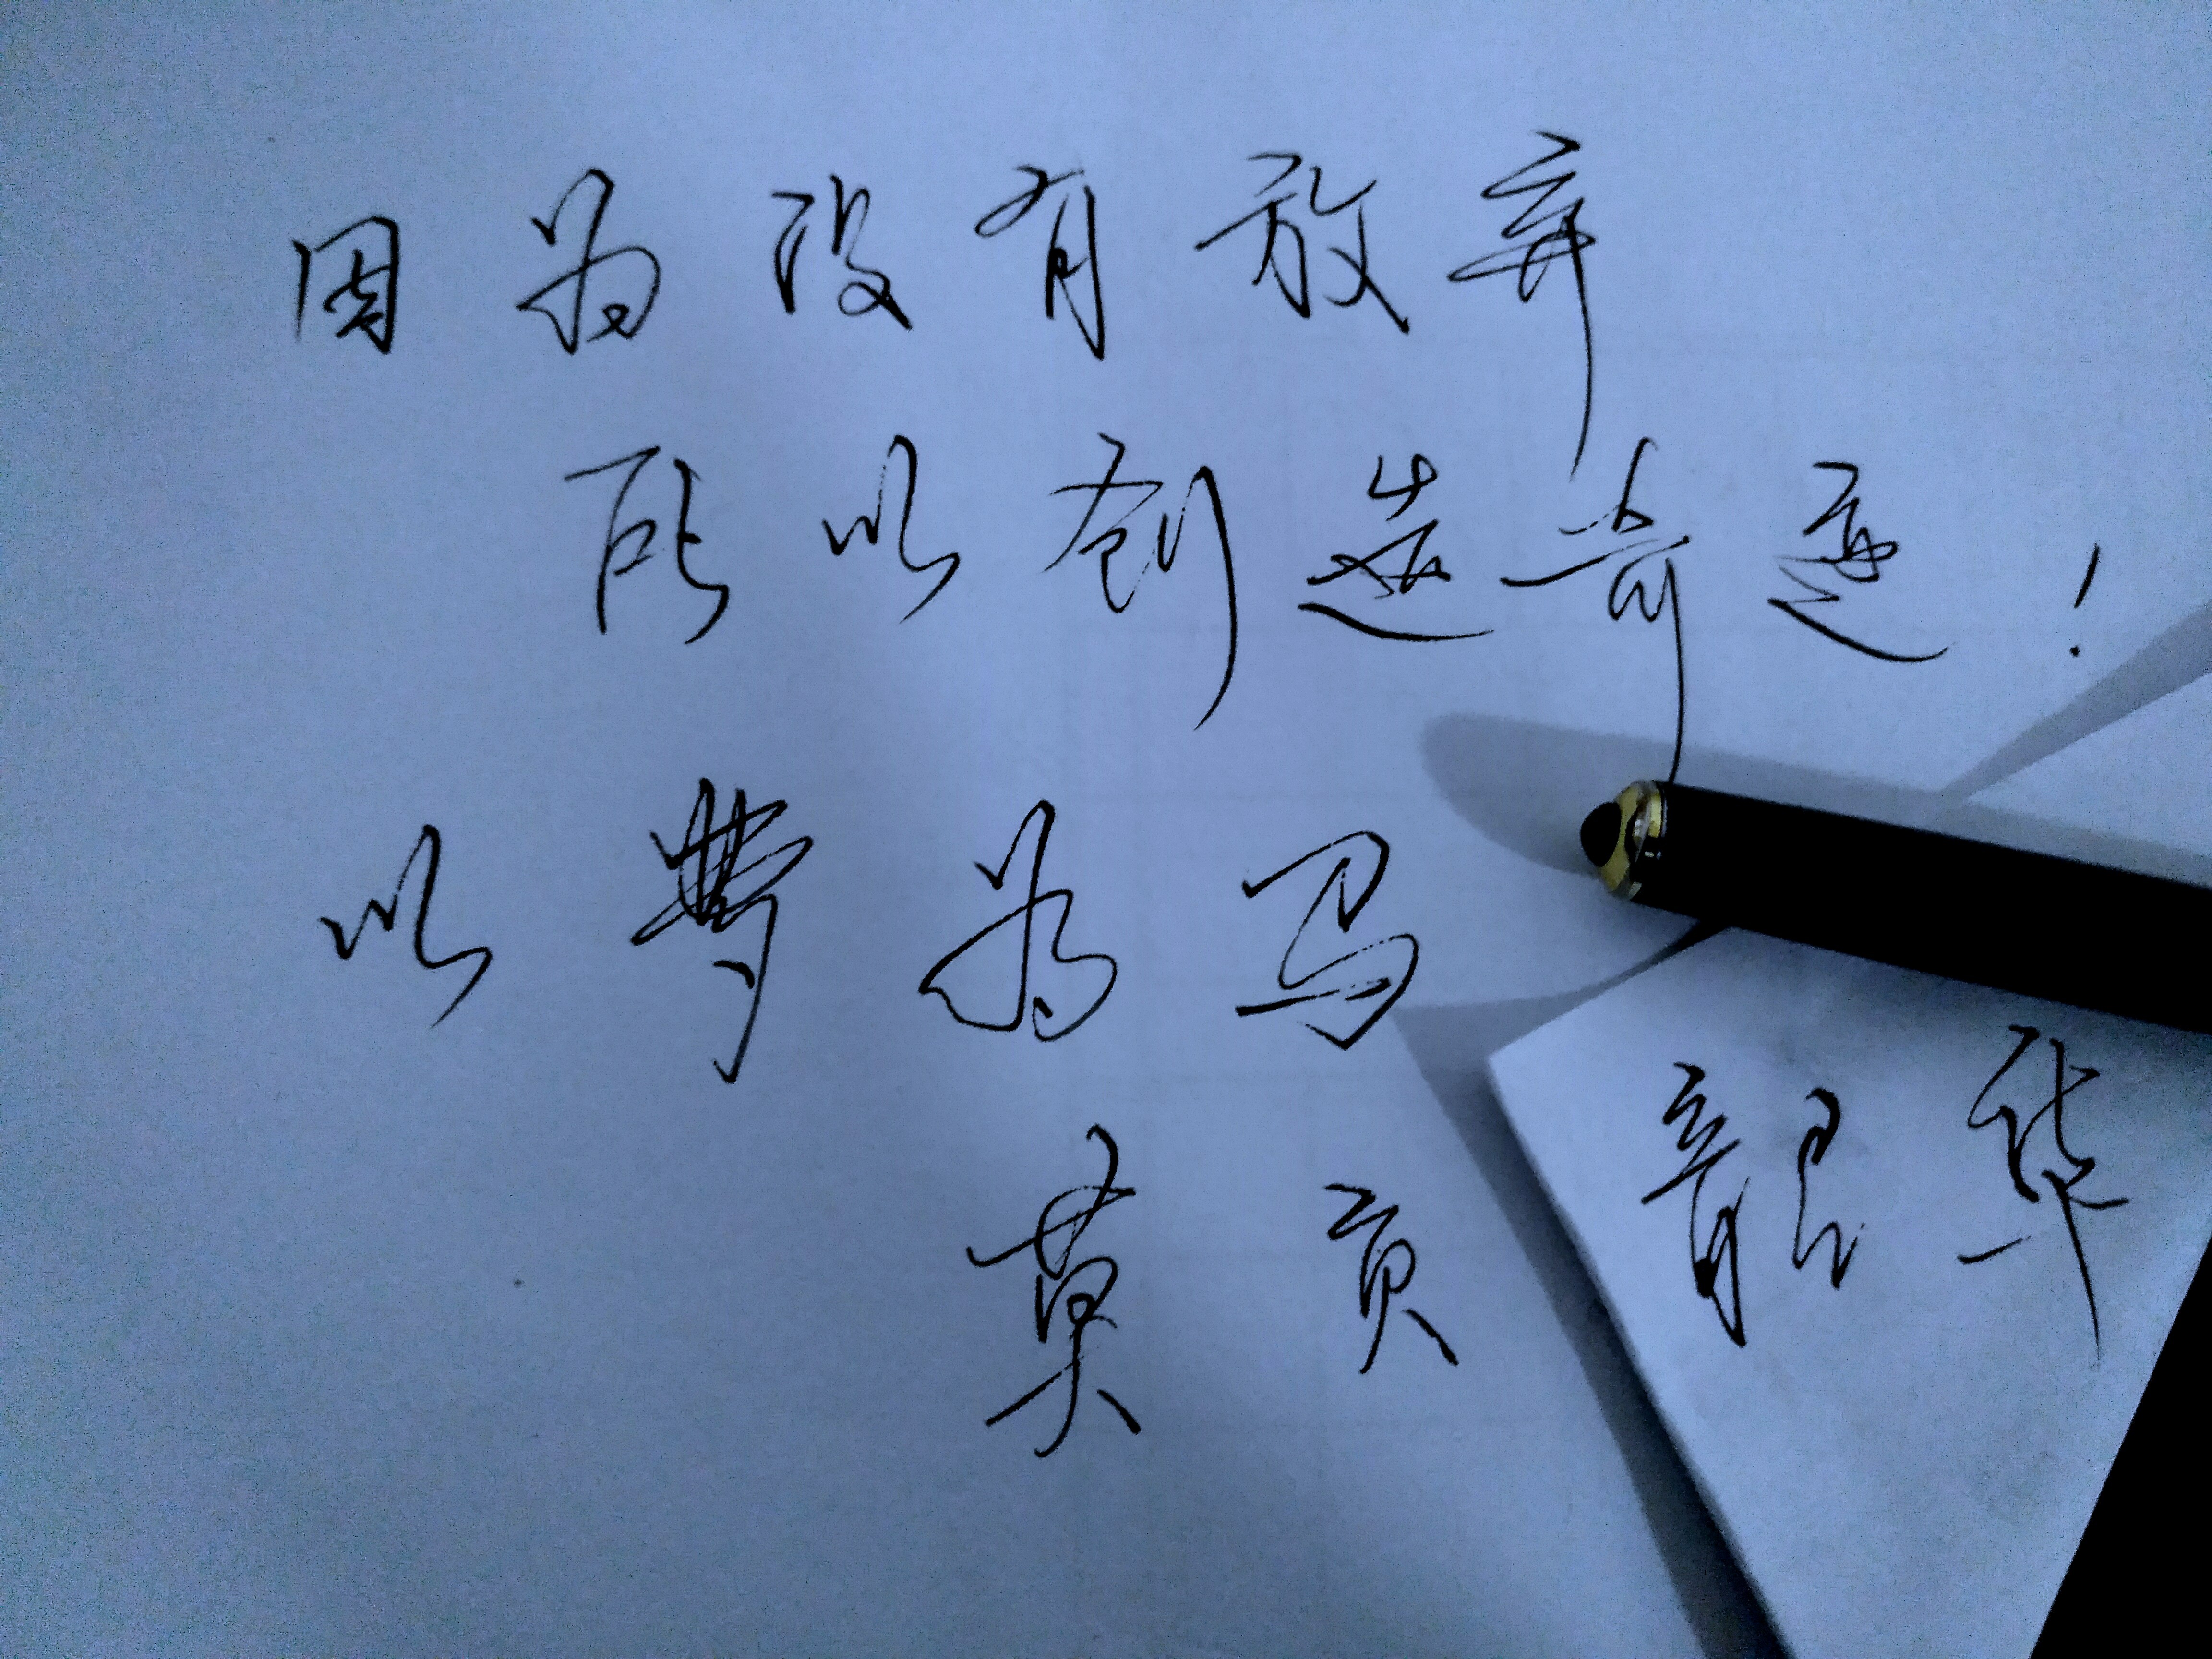 因为没有放弃
所以创造奇迹!
以梦为马
莫负韶华